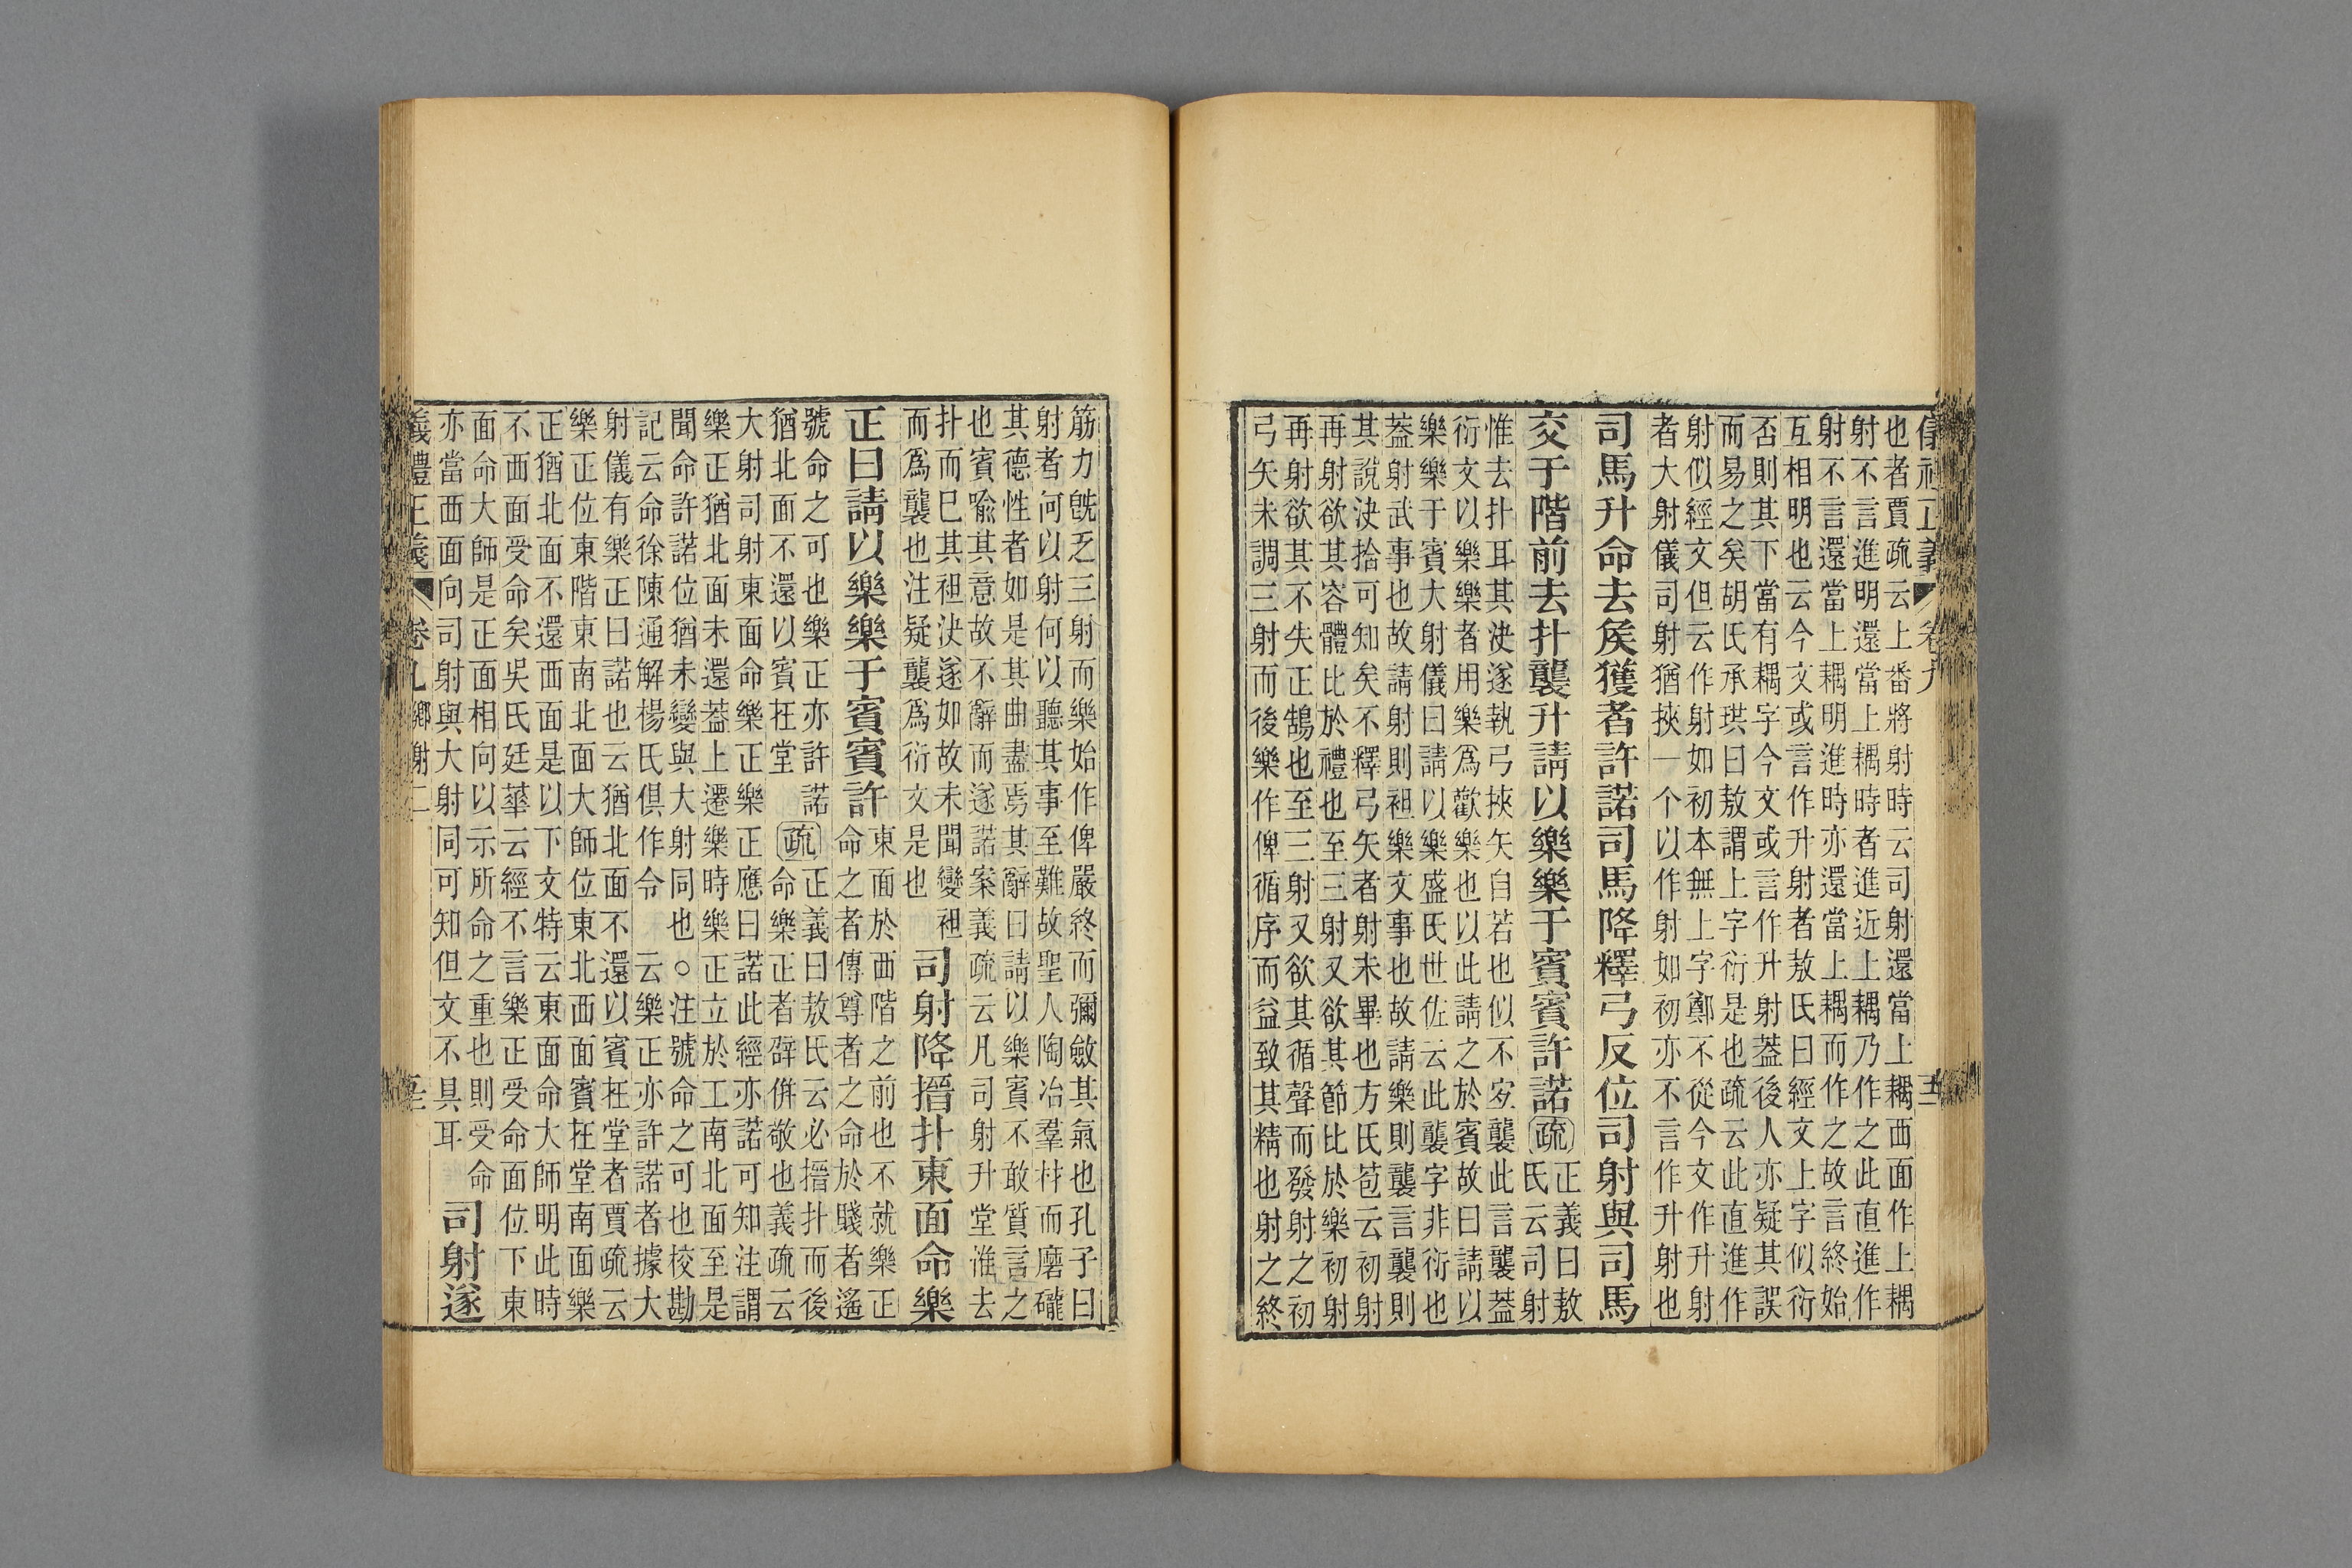 儀禮正義 卷九 五
也者賈疏云上番將射時云司射還當上耦西面作上耦
射不言進明還當上耦時者進近上耦乃作之此直進作
射不言還當上耦明進時亦還當上耦而作之故言終始
互相明也云今文或言作升射者敖氏曰經文上字似衍
否則其下當有耦字今文或言作升射葢後人亦疑其誤
而易之矣胡氏承珙曰敖謂上字衍是也疏云此直進作
射似經文但云作射如初本無上字鄭不從今文作升射
者大射儀司射猶挾一个以作射如初亦不言作升射也
司馬升命去矦獲者許諾司馬降釋弓反位司射與司馬
交于階前去扑襲升請以樂樂于賓賓許諾疏正義曰敖
氏云司射
惟去扑耳其決遂執弓挾矢自若也似不宐襲此言襲葢
衍文以樂樂者用樂爲歡樂也以此請之於賓故曰請以
樂樂于賓大射儀曰請以樂樂盛氏世佐云此襲字非衍也
葢射武事也故請射則袒樂文事也故請樂則襲言襲則
其說決拾可知矣不釋弓矢者射未畢也方氏苞云初射
再射欲其容體比於禮也至三射又欲其節比於樂初射
再射欲其不失正鵠也至三射又欲其循聲而發射之初
弓矢未調三射而後樂作俾循序而益致其精也射之終
筋力旣乏三射而樂始作俾嚴終而彌斂其氣也孔子曰
射者何以射何以聽其事至難故聖人陶冶羣材而磨礲
其德性者如是其曲盡焉其辭曰請以樂賓不敢質言之
也賓喩其意故不辭而遂諾案義疏云凡司射升堂淮去
扑而巳其袒決遂如故未聞變袒
而爲襲也注疑襲爲衍文是也
司射降搢扑東面命樂
正曰請以樂樂于賓賓許
東面於西階之前也不就樂正
命之者傳尊者之命於賤者遙
號命之可也樂正亦許諾
猶北面不還以賓在堂
疏正義曰敖氏云必搢扑而後
命樂正者辟併敬也義疏云
大射司射東面命樂正樂正應曰諾此經亦諾可知注謂
樂正猶北面未還葢上遷樂時樂正立於工南北面至是
聞命許諾位猶未變與大射同也○注號命之可也校勘
記云命徐陳通解楊氏俱作令 云樂正亦許諾者據大
射儀有樂正曰諾也云猶北面不還以賓在堂者賈疏云
樂正位東階東南北面大師位東北西面賓在堂南面樂
正猶北面不還西面是以下文特云東面命大師明此時
不西面受命矣吳氏廷華云經不言樂正受命面位下東
面命大師是正面相向以示所命之重也則受命
亦當西面向司射與大射同可知但文不具耳
司射遂
儀禮正義 卷九鄉射二